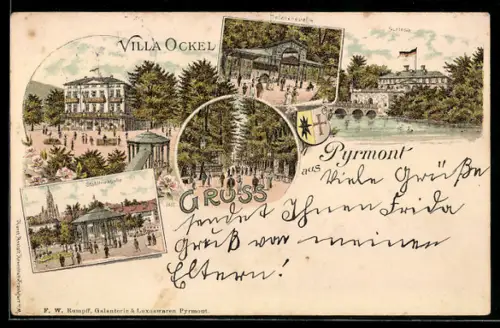 VILLA OCKEL
Schloss
GRUSS
aus
Pyrmont
Viele Grüße
sendet Ihnen Frida
Gruß von meinen
Eltern!
F. W. Rumpff, Galanterie & Luxuswaren Pyrmont.